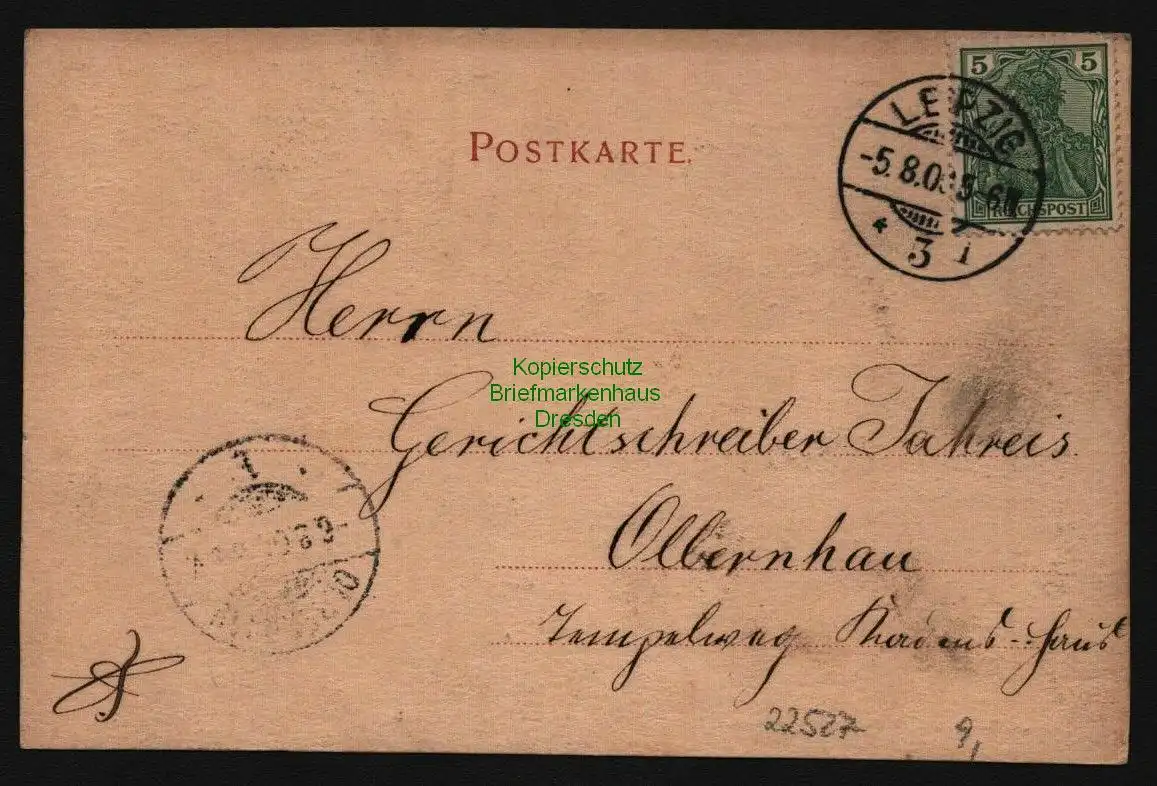 POSTKARTE.
5 5
REICHSPOST
LEIPZIG
-5.8.0 5-6N
* 3 I
Herrn
Kopierschutz
Briefmarkenhaus
Dresden
Gerichtschreiber Jahreis.
Olbernhau
Tempelweg Kadens-Haus
22527
9,